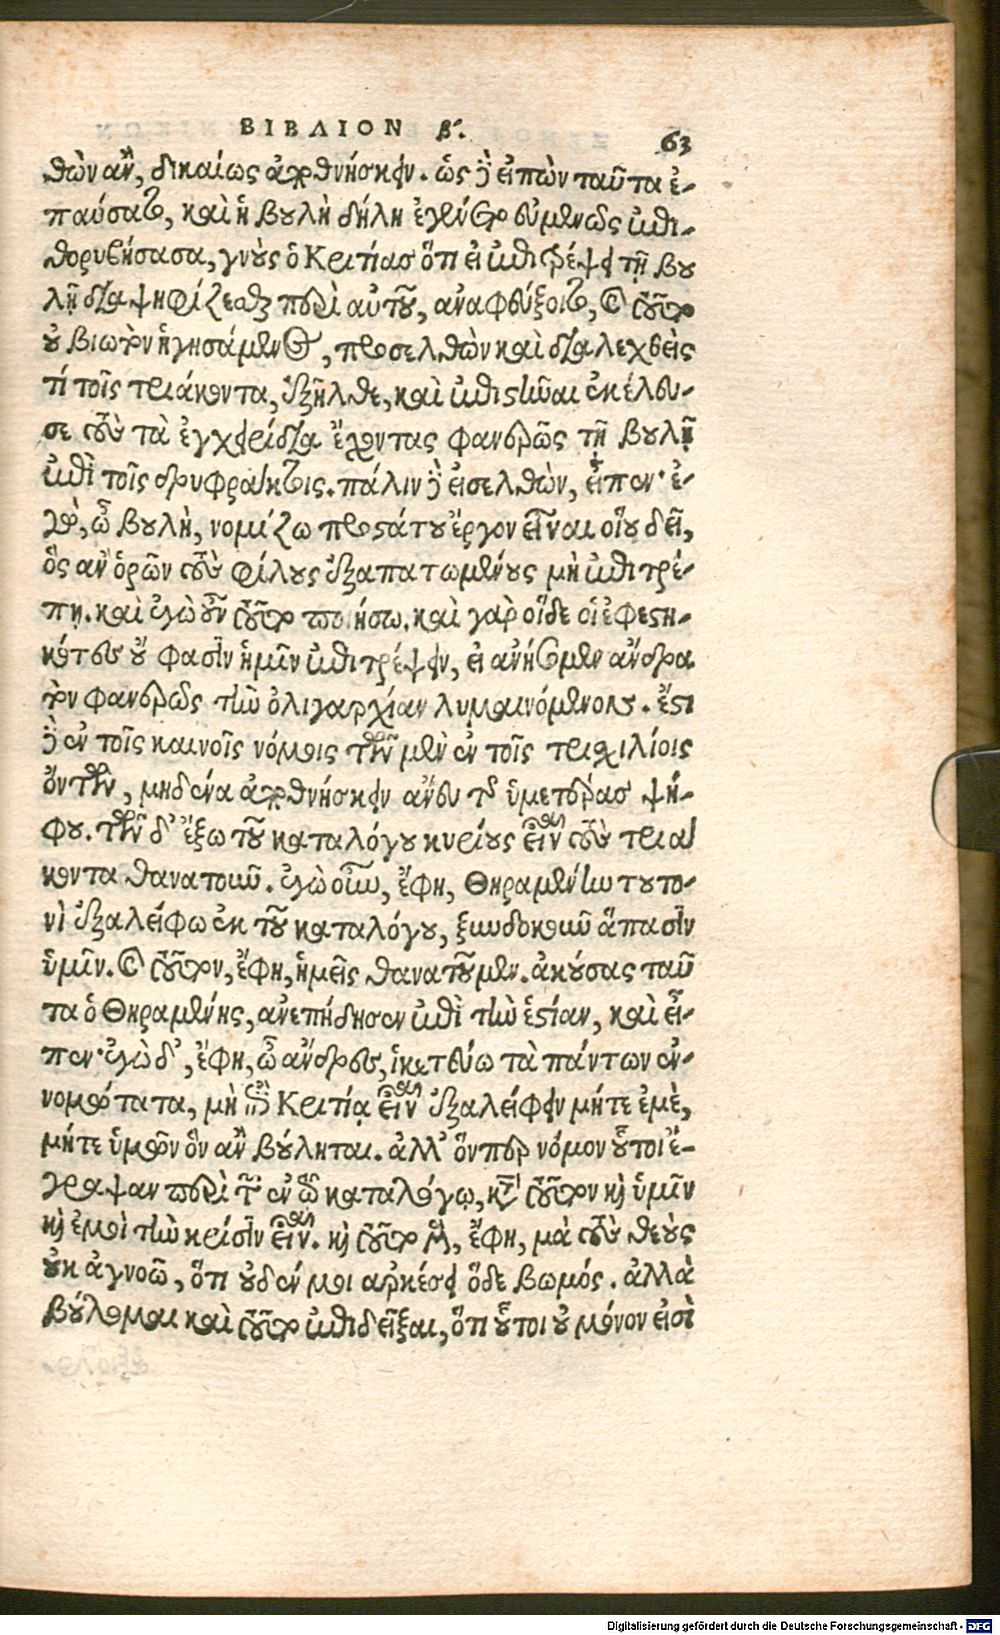 ΒΙΒΛΙΟΝ β΄. 63
θὼν ἂν, δικαίως ἀποθνήσκειν. ὡς δὲ εἰπὼν ταῦτα ἐ-
παύσατο, καὶ ἡ βουλὴ δήλη ἐγένετο εὐμενῶς ἐπι-
θορυβήσασα, γνοὺς ὁ Κριτίας ὅτι εἰ ἐπιτρέψει τῇ βου
λῇ διαψηφίζεσθαι περὶ αὐτοῦ, ἀναφεύξοιτο, καὶ τοῦτο
οὐ βιωτὸν ἡγησάμενος, προσελθὼν καὶ διαλεχθεὶς
τί τοῖς τριάκοντα, ἐξῆλθε, καὶ ἐπιστῆναι ἐκέλευ-
σε τοὺς τὰ ἐγχειρίδια ἔχοντας φανερῶς τῇ βουλῇ
ἐπὶ τοῖς δρυφράκτοις. πάλιν δὲ εἰσελθὼν, εἶπεν· ἐ-
γὼ, ὦ βουλὴ, νομίζω προστάτου ἔργον εἶναι οἵου δεῖ,
ὃς ἂν ὁρῶν τοὺς φίλους ἐξαπατωμένους μὴ ἐπιτρέ-
πῃ. καὶ ἐγὼ οὖν τοῦτο ποιήσω. καὶ γὰρ οἵδε οἱ ἐφεστη-
κότες οὔ φασιν ἡμῖν ἐπιτρέψειν, εἰ ἀνήσομεν ἄνδρα
τὸν φανερῶς τὴν ὀλιγαρχίαν λυμαινόμενον. ἔστι
δὲ ἐν τοῖς καινοῖς νόμοις τῶν μὲν ἐν τοῖς τρισχιλίοις
ὄντων, μηδένα ἀποθνήσκειν ἄνευ τῆς ὑμετέρας ψή-
φου. τῶν δ' ἔξω τοῦ καταλόγου κυρίους εἶναι τοὺς τριά
κοντα θανατοῦν. ἐγὼ οὖν, ἔφη, Θηραμένην τουτο-
νὶ ἐξαλείφω ἐκ τοῦ καταλόγου, ξυνδοκοῦν ἅπασιν
ὑμῖν. καὶ τοῦτον, ἔφη, ἡμεῖς θανατοῦμεν. ἀκούσας ταῦ
τα ὁ Θηραμένης, ἀνεπήδησεν ἐπὶ τὴν ἑστίαν, καὶ εἶ-
πεν· ἐγὼ δ', ἔφη, ὦ ἄνδρες, ἱκετεύω τὰ πάντων ἐν-
νομώτατα, μὴ ἐπὶ Κριτίᾳ εἶναι ἐξαλείφειν μήτε ἐμὲ,
μήτε ὑμῶν ὃν ἂν βούληται. ἀλλ' ὅνπερ νόμον οὗτοι ἔ-
γραψαν περὶ τῶν ἐν τῷ καταλόγῳ, κατὰ τοῦτον καὶ ὑμῖν
καὶ ἐμοὶ τὴν κρίσιν εἶναι. καὶ τοῦτο μὲν, ἔφη, μὰ τοὺς θεοὺς
οὐκ ἀγνοῶ, ὅτι οὐδέν μοι ἀρκέσει ὅδε βωμός. ἀλλὰ
βούλομαι καὶ τοῦτο ἐπιδεῖξαι, ὅτι οὗτοι οὐ μόνον εἰσὶ
Digitalisierung gefördert durch die Deutsche Forschungsgemeinschaft - DFG